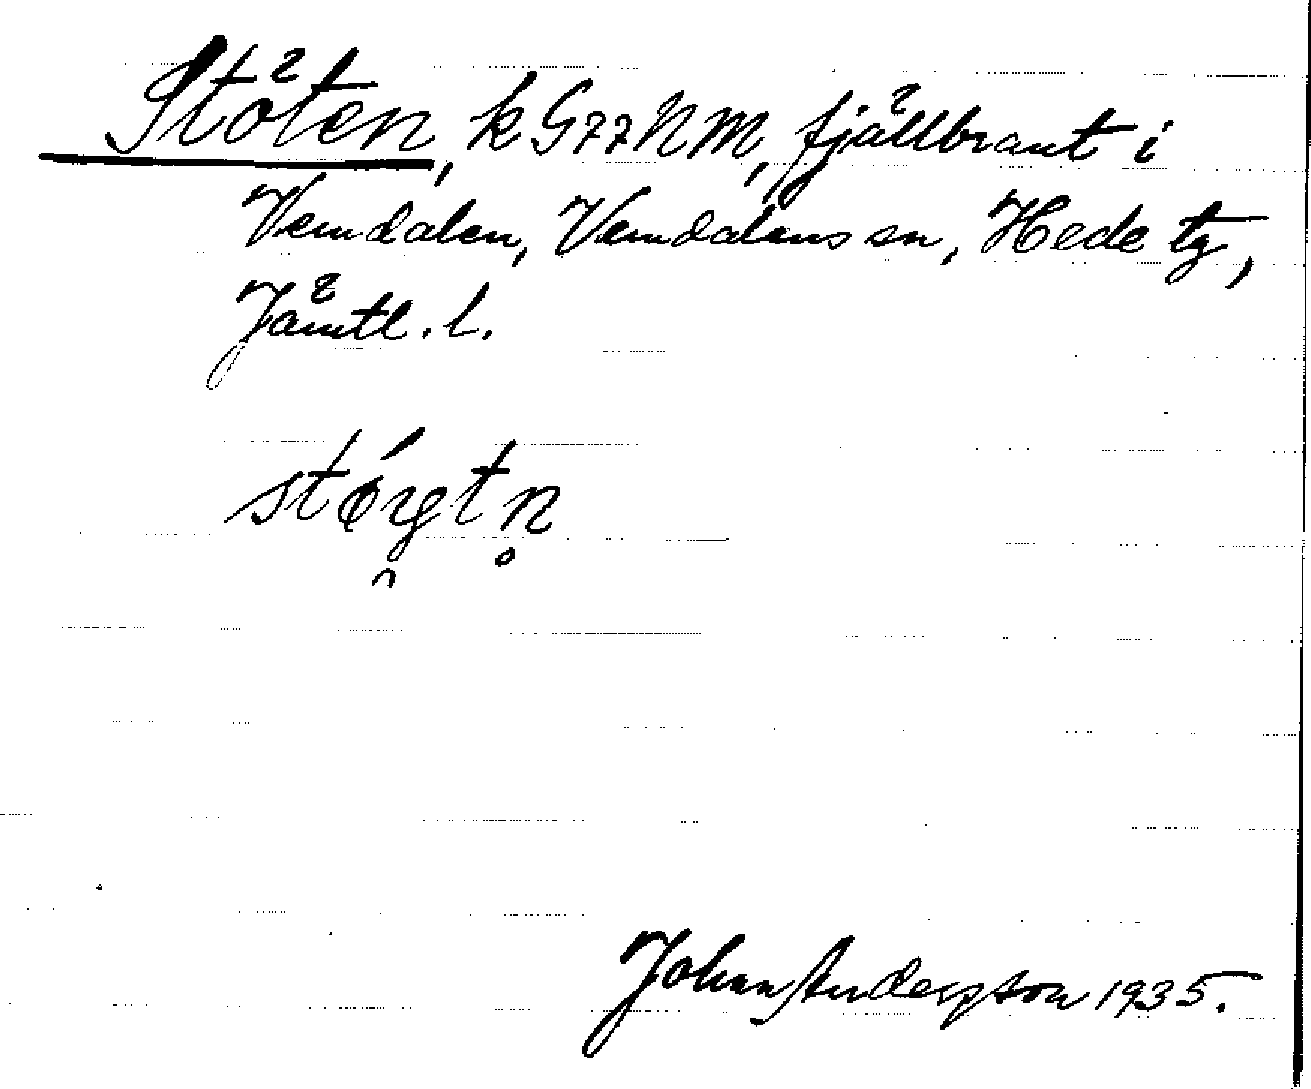 Stöten, k G77NM, fjällbrant i
Vemdalen, Vemdalens sn, Hede tg,
Jämtl. l.
Johan Anderzson 1935.